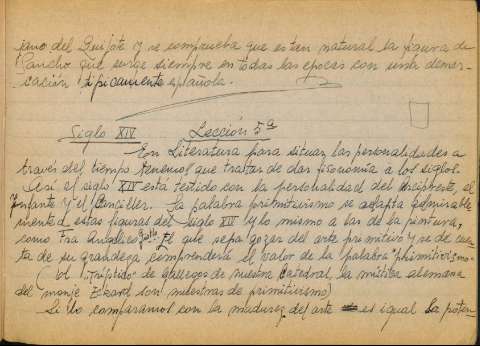 jano del Quijote y se comprueba que es tan natural la figura de
Sancho que surge siempre en todas las epocas con una
tipicamente española.
Siglo XIV Lección 5ª
En Literatura para situar las personalidades a
través del tiempo tenemos que tratar de dar fisonomia a los siglos.
Asi el siglo XIV está teñido con la personalidad del Arcipreste, el
Infante y el Canciller. La palabra primitivismo se adapta admirable
mente á estas figuras del siglo XIV y lo mismo a las de la pintura,
como Fra Angelico Giotto El que sepa gozar del arte primitivo y se de cuen
ta de su grandeza comprenderá el valor de la palabra "primitivismo"
(el triptico de Gallegos de nuestra Catedral, la mistica alemana
del monje son muestras de primitivismo)
Si lo comparamos con la madurez del arte es igual la poten